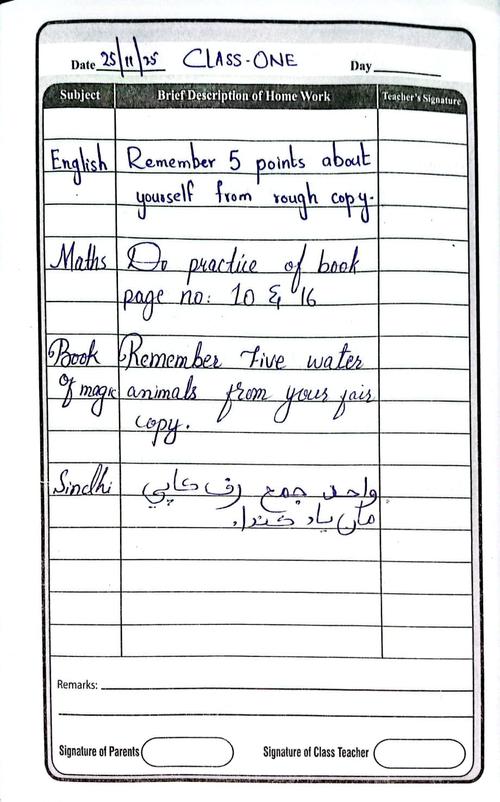 Date 25/11/25 CLASS-ONE Day
Subject Brief Description of Home Work Teacher's Signature
English Remember 5 points about
yourself from rough copy.
Maths Do practice of book
page no: 10 & 16
Book Remember Five water
Of magic animals from your fair
copy.
Sindhi واحد جمع رف ڪاپي
مان ياد ڪندا.
Remarks:
Signature of Parents Signature of Class Teacher